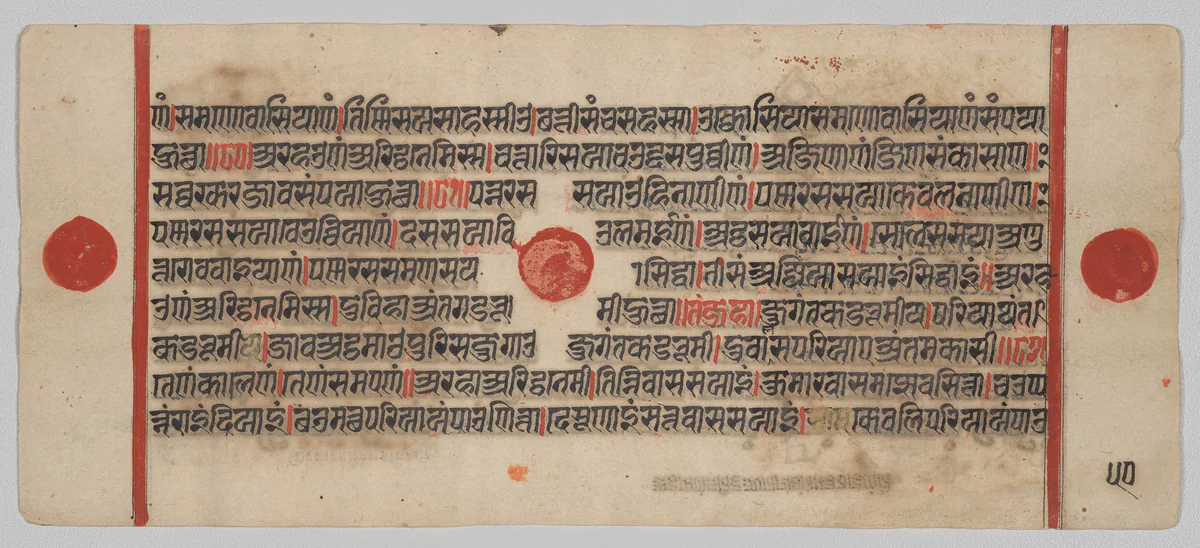 णं।समणोवासियाणं।तिन्निसयसाहस्सीउ।छत्तीसंचसहस्सा।उक्कोसियासमणोवासियाणंसंपया
हुत्था॥अरहउणंअरिट्ठनेमिस्स।चत्तारिसयाचउद्दसपुव्वीणं।अजिणाणंजिणसंकासाणं॥
सव्वरकरजावसंपयाहुत्था॥पन्नरस सयाउहिनाणीणं।पन्नरससयाकेवलनाणीणं।
पन्नरससयावेउव्वियाणं।दससयावि उलमईणं।अट्ठसयावाईणं।सोलससयाअणु
त्तरोववाइयाणं।पन्नरससमणसया सिद्धा।तीसंअज्जियासयाइंसिद्धाइं॥अरह
उणंअरिट्ठनेमिस्स।दुविहाअंतगडभू मीहुत्था॥तंजहा।जुगंतकडभूमीय।परियायंत
कडभूमीय।जावअट्ठमाउपुरिसजुगाउ जुगंतकडभूमी।दुवासपरियाएअंतमकासी॥
तेणंकालेणं।तेणंसमएणं॥अरहाअरिट्ठनेमी।तिन्निवाससयाइं।कुमारवासमज्झेवसित्ता।चउप
न्नंराइंदियाइं।छउमत्थपरियायंपाउणित्ता।देसूणाइंसत्तवाससयाइं।केवलिपरियायंपाउ
५०